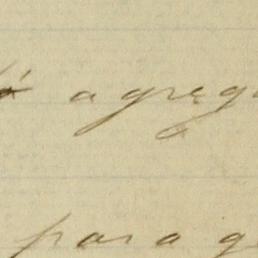 agreg
para q